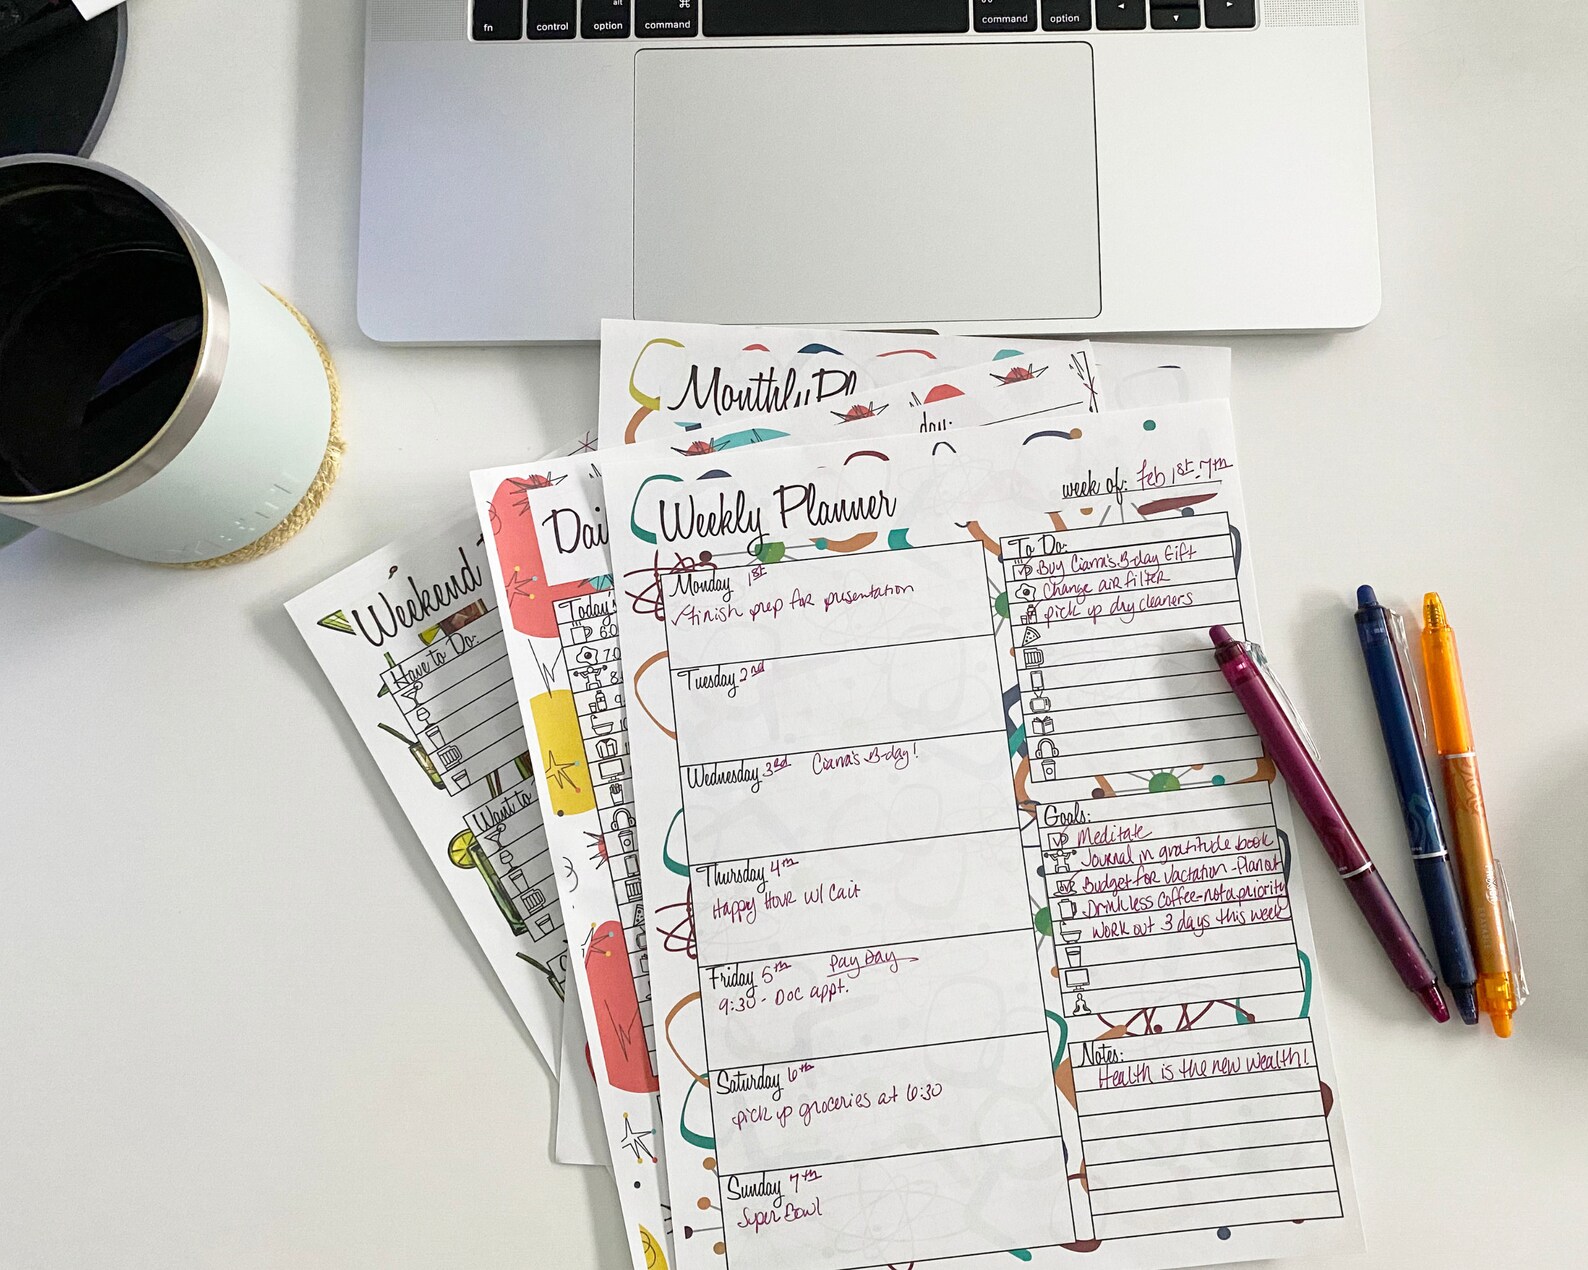 fn
control
alt
option
⌘
command
⌘
command
option
Monthly Pl
day:
Weekend
Have to Do:
Want to
Dai
Today's
Weekly Planner
week of: Feb 1st-7th
Monday 1st
✓finish prep for presentation
Tuesday 2nd
Wednesday 3rd Ciarra's B-day!
Thursday 4th
Happy Hour w/ Cait
Friday 5th Pay Day
9:30 - Doc appt.
Saturday 6th
pick up groceries at 6:30
Sunday 7th
Super Bowl
To Do:
Buy Ciarra's B-day Gift
Change air filter
pick up dry cleaners
Goals:
Meditate
Journal in gratitude book
Budget for vactation - Plan at
Drink less coffee - not a priority
Work out 3 days this week
Notes:
Health is the new wealth!